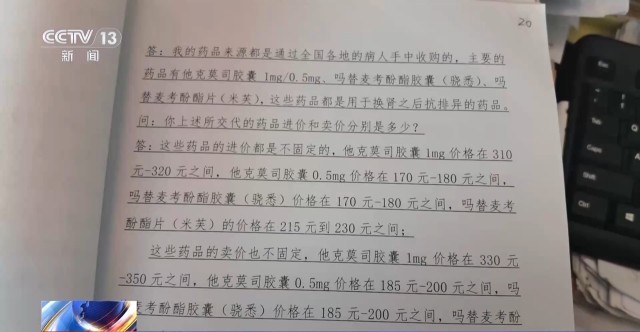 CCTV 13
新闻
20
答：我的药品来源都是通过全国各地的病人手中收购的，主要的
药品有他克莫司胶囊 1mg/0.5mg。吗替麦考酚酯胶囊（骁悉）。吗
替麦考酚酯片（米芙），这些药品都是用于换肾之后抗排异的药品。
问：你上述所交代的药品进价和卖价分别是多少？
答：这些药品的进价都是不固定的，他克莫司胶囊 1mg 价格在 310
元-320 元之间，他克莫司胶囊 0.5mg 价格在 170 元-180 元之间，
吗替麦考酚酯胶囊（骁悉）价格在 170 元-180 元之间，吗替麦考
酚酯片（米芙）的价格在 215 元到 230 元之间；
这些药品的卖价也不固定，他克莫司胶囊 1mg 价格在 330 元
-350 元之间，他克莫司胶囊 0.5mg 价格在 185 元-200 元之间，吗
麦考酚酯胶囊（骁悉）价格在 185 元-200 元之间，吗替麦考酚